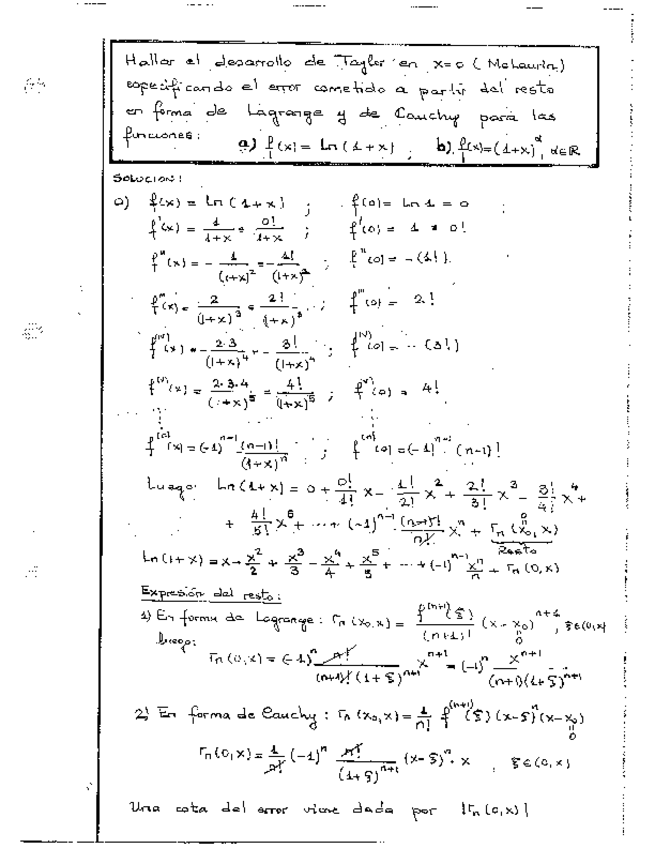 Hallar el desarrollo de Taylor en x=0 (McLaurin)
especificando el error cometido a partir del resto
en forma de Lagrange y de Cauchy para las
funciones: a) f(x) = Ln(1+x) ; b) f(x)=(1+x)^α, α∈R
SOLUCION:
a) f(x) = Ln(1+x) ; f(0) = Ln 1 = 0
f'(x) = 1/(1+x) = 0!/(1+x) ; f'(0) = 1 = 0!
f''(x) = - 1/(1+x)^2 = - 1!/(1+x)^2 ; f''(0) = -(1!)
f'''(x) = 2/(1+x)^3 = 2!/(1+x)^3 ; f'''(0) = 2!
f^(IV)(x) = - 2·3/(1+x)^4 = - 3!/(1+x)^4 ; f^(IV)(0) = -(3!)
f^(V)(x) = 2·3·4/(1+x)^5 = 4!/(1+x)^5 ; f^(V)(0) = 4!
f^(n)(x) = (-1)^(n-1) (n-1)!/(1+x)^n ; f^(n)(0) = (-1)^(n-1) (n-1)!
Luego: Ln(1+x) = 0 + 0!/1! x - 1!/2! x^2 + 2!/3! x^3 - 3!/4! x^4 +
+ 4!/5! x^5 + ... + (-1)^(n-1) (n-1)!/n! x^n + r_n(x_0, x)
0
Resto
Ln(1+x) = x - x^2/2 + x^3/3 - x^4/4 + x^5/5 + ... + (-1)^(n-1) x^n/n + r_n(0,x)
Expresión del resto:
1) En forma de Lagrange: r_n(x_0,x) = f^(n+1)(ξ)/(n+1)! (x-x_0)^(n+1), ξ∈(0,x)
0
Luego:
r_n(0,x) = (-1)^n n!/((n+1)! (1+ξ)^(n+1)) x^(n+1) = (-1)^n x^(n+1)/((n+1)(1+ξ)^(n+1))
2) En forma de Cauchy: r_n(x_0,x) = 1/n! f^(n+1)(ξ) (x-ξ)^n (x-x_0)
0
r_n(0,x) = 1/n! (-1)^n n!/(1+ξ)^(n+1) (x-ξ)^n · x , ξ∈(0,x)
Una cota del error viene dada por |r_n(0,x)|